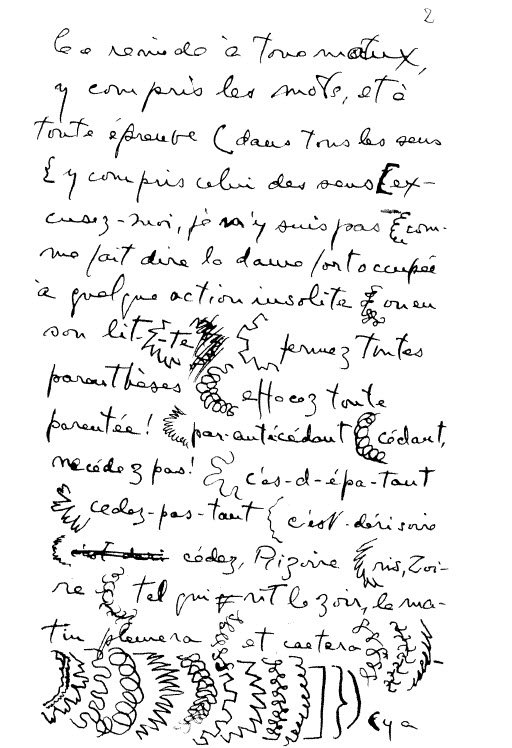 2
le remède à tous maux,
y compris les mots, et à
toute épreuve (dans tous les sens
{ y compris celui des sens [ex-
cusez-moi, je n'y suis pas { com-
me fait dire la dame fort occupée
à quelque action insolite { ou en
son lit-t-te fermez toutes
parenthèses ( effacez toute
parentée! ( par-antécédant ( cédant,
ne cédez pas! { c'es-d-épa-tant
cedez-pas-tant { c'est-dérisoire
( cédez, Rizoire ( ris, Zoi-
re { tel qui rit le zoir, le ma-
tin pleurera et caetera
] } ( y a